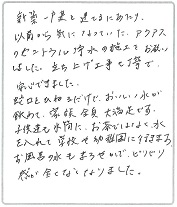 新築一戸建を建てるにあたり、
以前から気になっていた、アクアス
のセントラル浄水の施工をお願い
しました。立ち上げ工事も丁寧で、
安心できました。
蛇口をひねるだけで、おいしい水が
飲めて、家族全員大満足です。
子供達も水筒に、お茶ではなく、水
を入れて学校や幼稚園に行きます。
お風呂の水もまろやかで、ピリピリ
感が全くなくなりました。